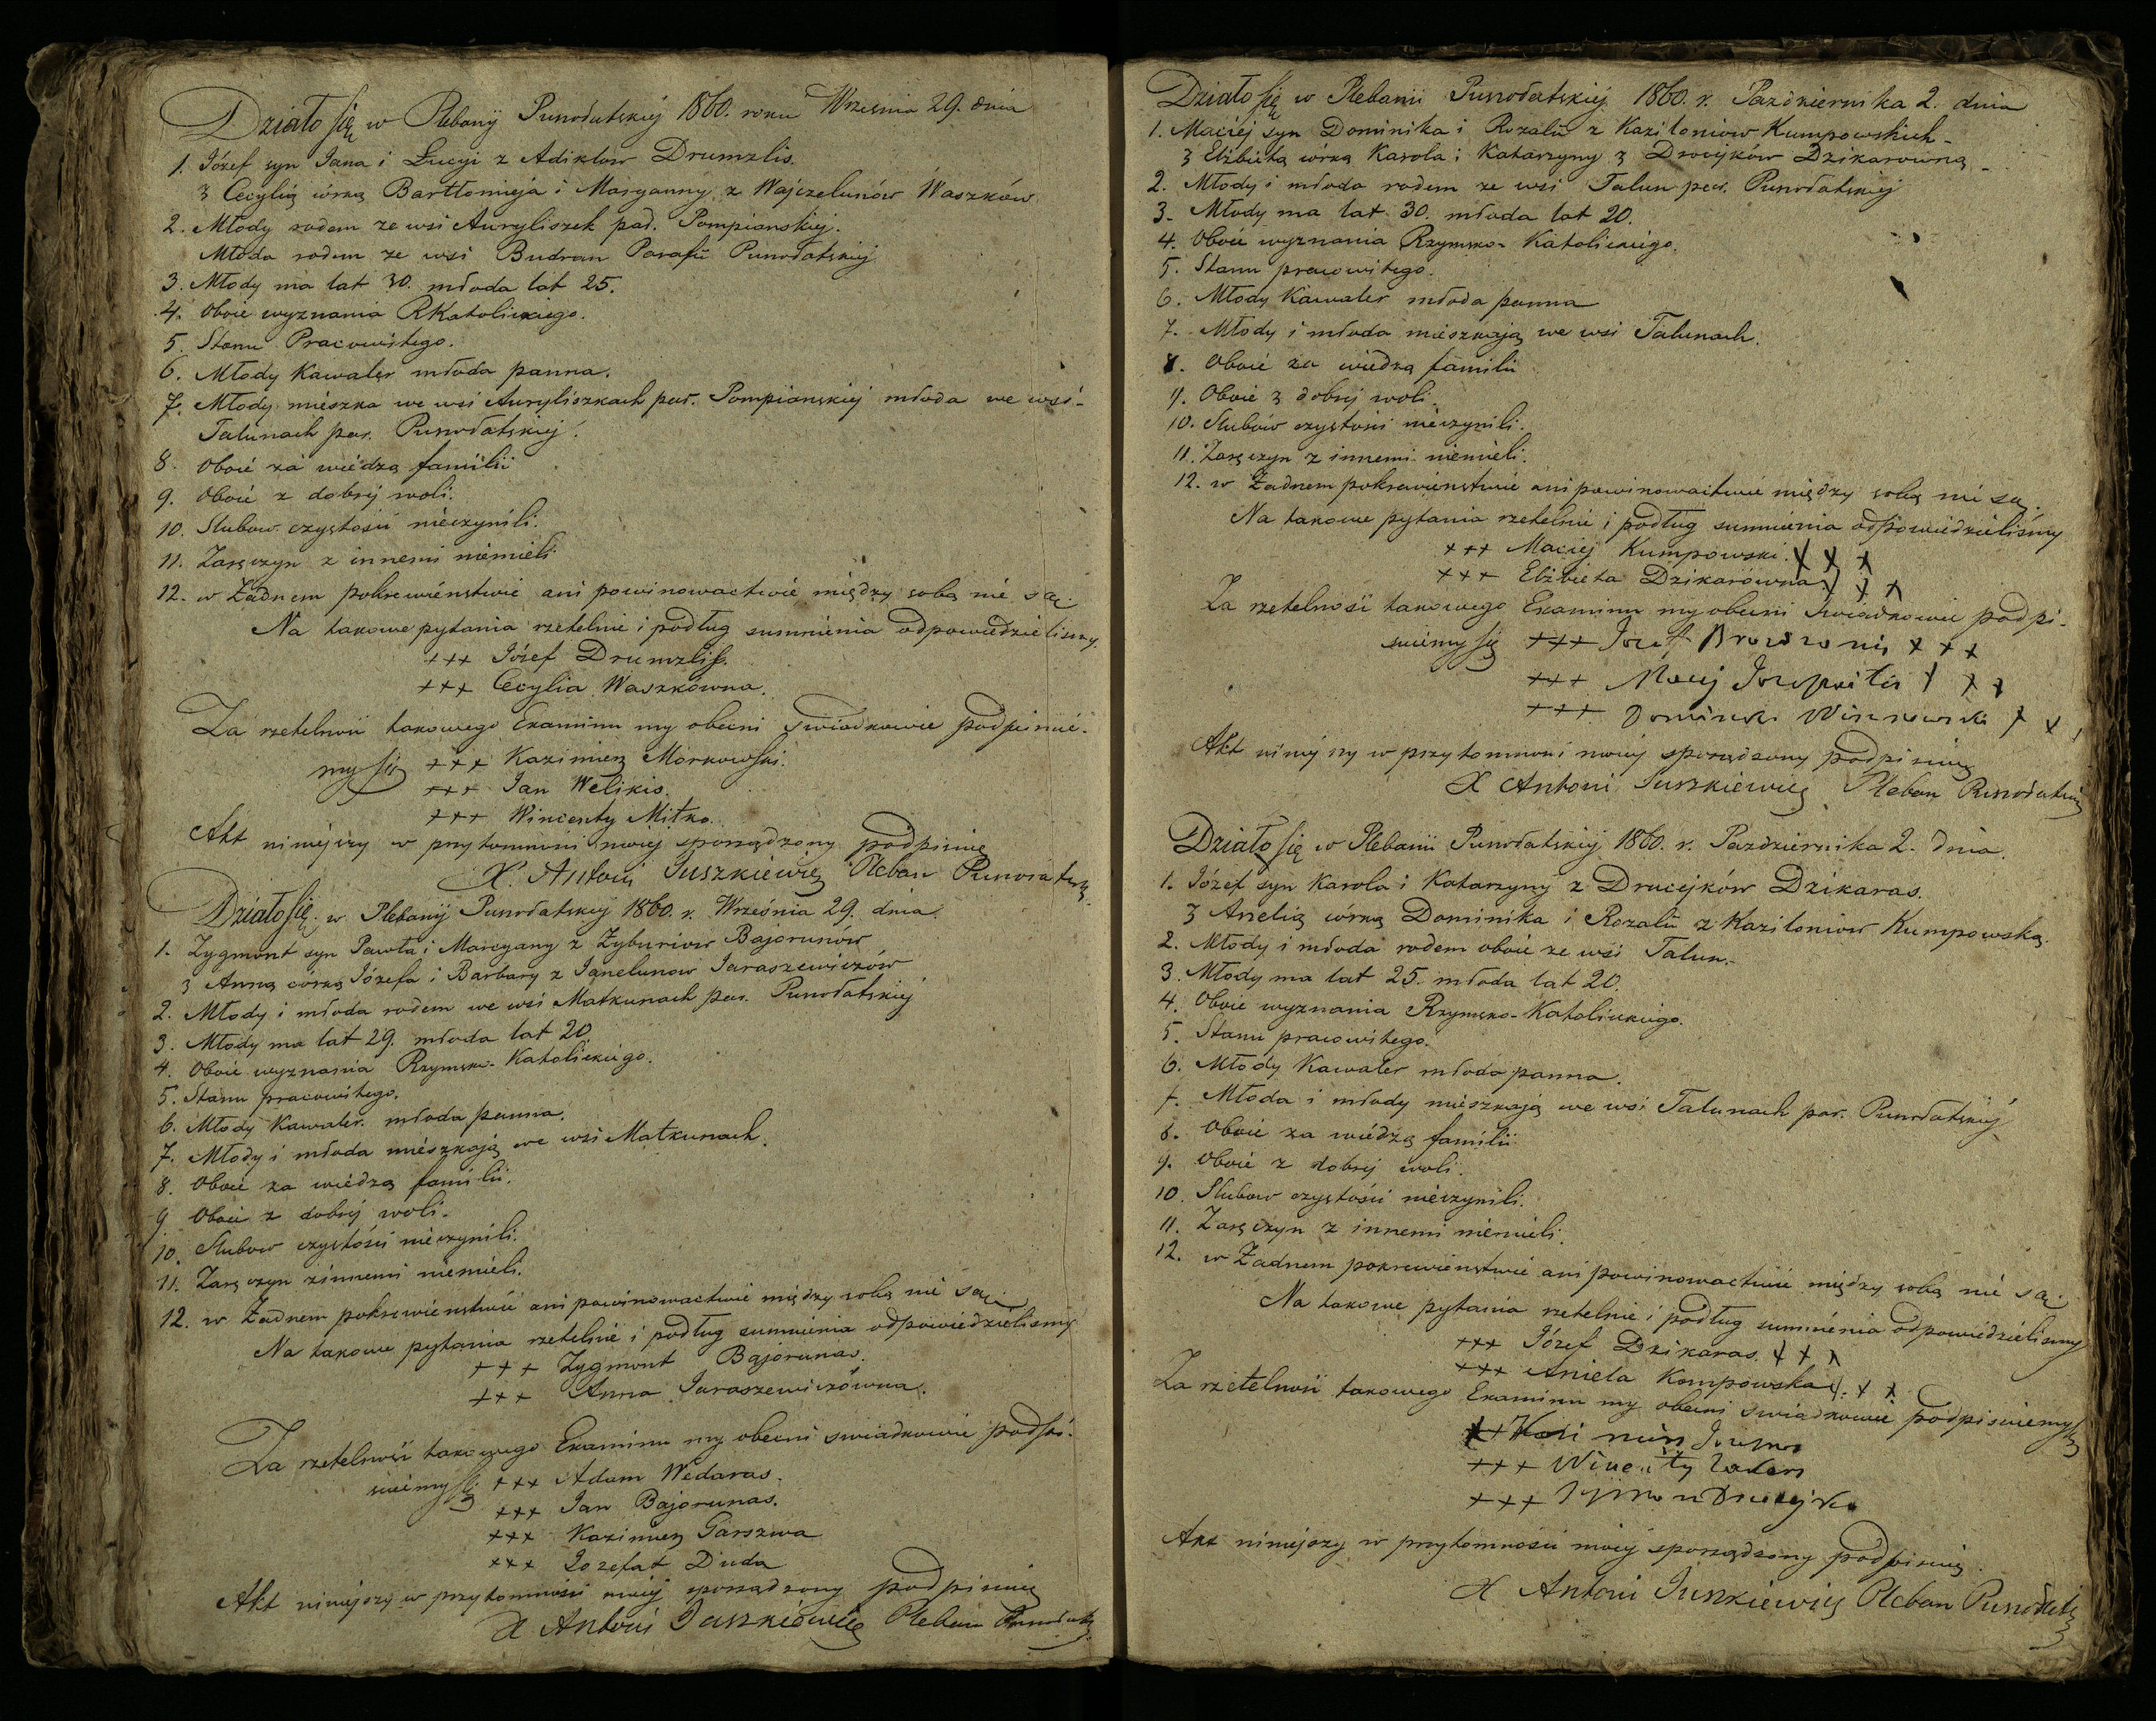 Działo się w Plebanij Punodatskiej 1860. roku Wrzesnia 29. dnia
1. Józef syn Jana i Łucyi z Adiklow Drumzlis.
z Cecylią córką Bartłomieja i Maryanny z Wajczelunów Waszków
2. Młody rodem ze wsi Auryliszek par. Pompianskiej.
Młoda rodem ze wsi Budran Parafii Punodatskiej
3. Młody ma lat 30. młoda lat 25.
4. Oboie wyznania RKatolickiego.
5. Stanu Pracowitego.
6. Młody Kawaler młoda panna.
7. Młody mieszka we wsi Auryliszkach par. Pompianskiej młoda we wsi
Talunach par. Punodatskiej.
8. Oboie za wiedzą familii
9. Oboie z dobrej woli.
10. Slubow czystosci nieczynili.
11. Zaręczyn z innemi niemieli
12. w Żadnem pokrewienstwie ani powinowactwie między sobą nie są.
Na takowe pytania rzetelnie i podług sumnienia odpowiedzielismy.
+++ Józef Drumzlis.
+++ Cecylia Waszkowna.
Za rzetelność takowego Examinu my obecni swiadkowie podpisuie-
my się +++ Kazimierz Morkowski.
+++ Jan Welikis.
+++ Wincenty Mitko.
Akt niniejszy w przytomności mojej sporządzony podpisuię
X. Antoni Juszkiewicz Pleban
Działo się w Plebanij Punodatskiej 1860. r. Września 29. dnia.
1. Zygmont syn Pawła i Marcyany z Zyburiow Bajorunów
z Anną córką Józefa i Barbary z Janelunow Jaraszewiczów
2. Młody i młoda rodem we wsi Matkunach par. Punodatskiej
3. Młody ma lat 29. młoda lat 20.
4. Oboie wyznania Rzymsko-Katolickiego.
5. Stanu pracowitego.
6. Młody Kawaler. młoda panna.
7. Młody i młoda mieszkają we wsi Matkunach.
8. Oboie za wiedzą familii.
9 Oboie z dobrej woli.
10. Slubow czystości nieczynili.
11. Zaręczyn zinnemi niemieli.
12. w Żadnem pokrewieństwie ani powinowactwie między sobą nie są.
Na takowe pytania rzetelnie i podług sumnienia odpowiedzielismy
+++ Zygmont Bajorunas.
+++ Anna Jaraszewiczówna.
Za rzetelność takowego Examinu my obecni swiadkowie podpi-
suiemy się +++ Adam Wedaras.
+++ Jan Bajorunas.
+++ Kazimierz Garszwa
+++ Jozefat Duda
Akt niniejszy w przytomności mojej sporządzony podpisuię
X Antoni Juszkiewicz Pleban
Działo się w Plebanii Punodatskiej 1860. r. Pazdziernika 2. dnia
1. Maciej syn Dominika i Rozalii z Kaziloniow Kumpowskich
z Elżbietą córką Karola i Katarzyny z Drucejków Dzikarowną
2. Młody i młoda rodem ze wsi Talun par. Punodatskiej
3. Młody ma lat 30. młoda lat 20.
4. Oboie wyznania Rzymsko-Katolickiego.
5. Stanu pracowitego.
6. Młody Kawaler młoda panna
7. Młody i młoda mieszkają we wsi Talunach.
8. Oboie za wiedzą familii
9. Oboie z dobrej woli.
10. Slubów czystości nieczynili.
11. Zaręczyn z innemi niemieli.
12. w Żadnem pokrewienstwie ani powinowactwie między sobą nie są.
Na takowe pytania rzetelnie i podług sumnienia odpowiedzieliśmy
+++ Maciej Kumpowski. +++
+++ Elżbieta Dzikarówna +++
Za rzetelność takowego Examinu my obecni swiadkowie podpi-
suiemy się +++ Jozef +++
+++ Maciej +++
+++ Dominik +++
Akt niniejszy w przytomnosci mojej sporządzony podpisuię
X Antoni Juszkiewicz Pleban
Działo się w Plebanii Punodatskiej 1860. r. Pazdziernika 2. dnia.
1. Józef syn Karola i Katarzyny z Drucejków Dzikaras.
z Anelią córką Dominika i Rozalii z Kaziloniow Kumpowską.
2. Młody i młoda rodem oboie ze wsi Talun.
3. Młody ma lat 25. młoda lat 20.
4. Oboie wyznania Rzymsko-Katolickiego.
5. Stanu pracowitego.
6. Młody Kawaler młoda panna.
7. Młoda i młody mieszkają we wsi Talunach par. Punodatskiej
8. Oboie za wiedzą familii
9. Oboie z dobrej woli.
10. Slubow czystości nieczynili.
11. Zaręczyn z innemi niemieli.
12. w Żadnem pokrewieństwie ani powinowactwie między sobą nie są.
Na takowe pytania rzetelnie i podług sumnienia odpowiedzielismy
+++ Józef Dzikaras. +++
+++ Aniela Kompowska. +++
Za rzetelność takowego Examinu my obecni swiadkowie podpisuiemy się
+++ Wincenty
Akt niniejszy w przytomności mojej sporządzony podpisuię.
X Antoni Juszkiewicz Pleban